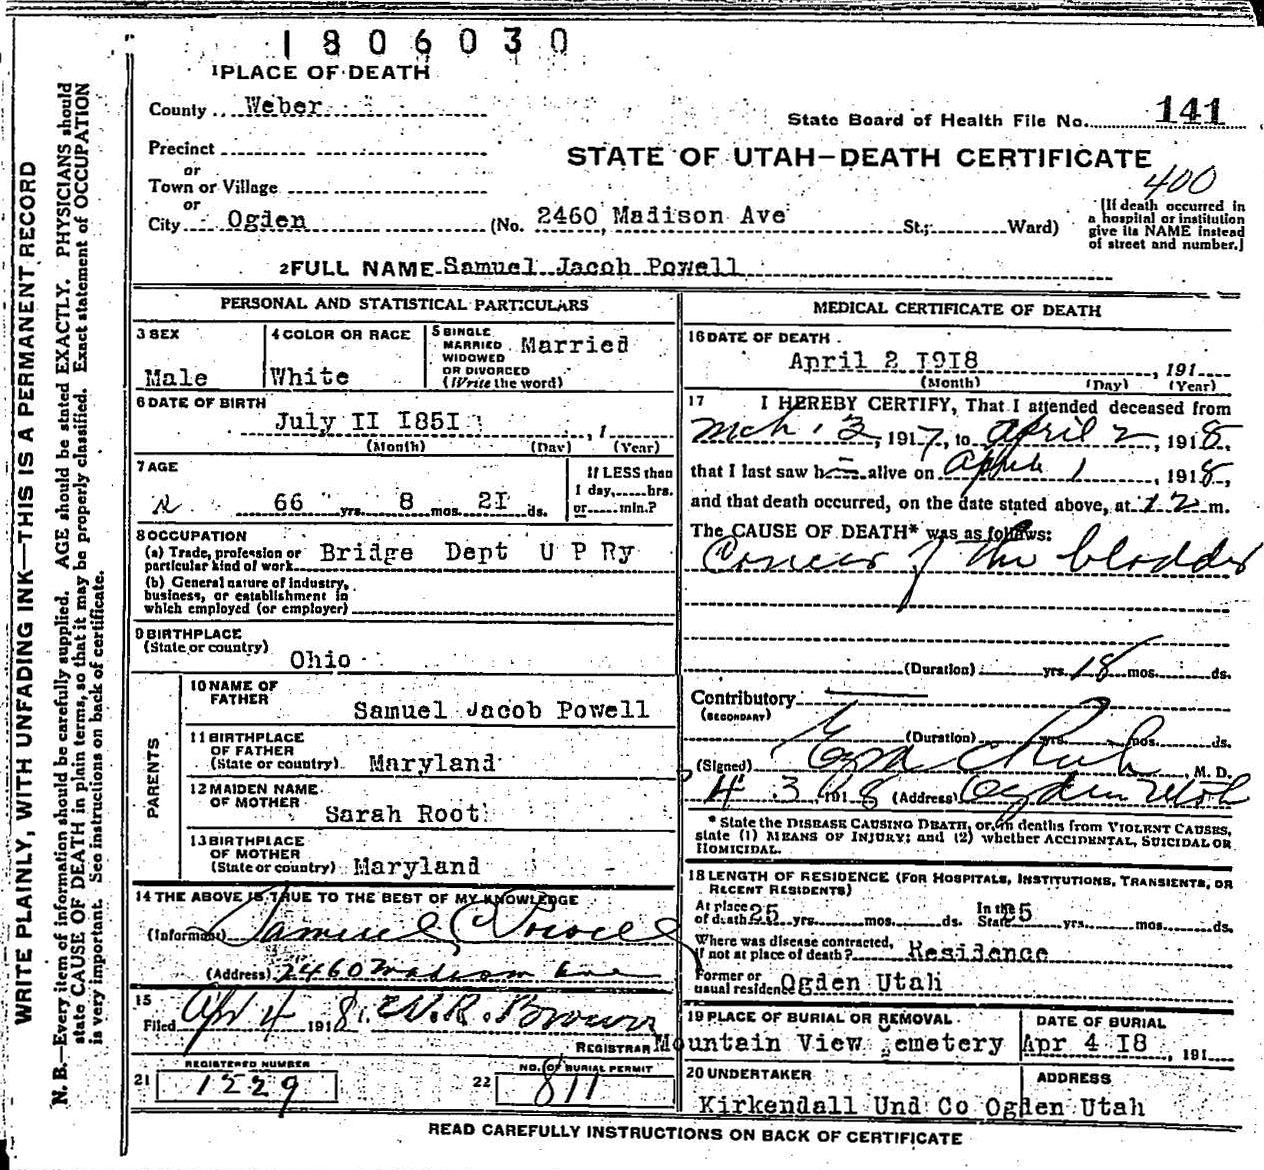 1806030
1 PLACE OF DEATH
County Weber
State Board of Health File No. 141
Precinct
or
STATE OF UTAH—DEATH CERTIFICATE
400
Town or Village
or
City Ogden (No. 2460 Madison Ave St.; Ward)
[If death occurred in
a hospital or institution
give its NAME instead
of street and number.]
2 FULL NAME Samuel Jacob Powell
PERSONAL AND STATISTICAL PARTICULARS
3 SEX
Male
4 COLOR OR RACE
White
5 SINGLE
MARRIED
WIDOWED
OR DIVORCED
(Write the word)
Married
6 DATE OF BIRTH
July II I85I , 1
(Month) (Day) (Year)
7 AGE
66 yrs. 8 mos. 2I ds.
If LESS than
1 day, hrs.
or min.?
8 OCCUPATION
(a) Trade, profession or
particular kind of work Bridge Dept U P Ry
(b) General nature of industry,
business, or establishment in
which employed (or employer)
9 BIRTHPLACE
(State or country)
Ohio
PARENTS
10 NAME OF
FATHER
Samuel Jacob Powell
11 BIRTHPLACE
OF FATHER
(State or country) Maryland
12 MAIDEN NAME
OF MOTHER
Sarah Root
13 BIRTHPLACE
OF MOTHER
(State or country) Maryland
14 THE ABOVE IS TRUE TO THE BEST OF MY KNOWLEDGE
(Informant) Samuel C Powell
(Address) 2460 Madison Ave
15
Filed Apr 4 1918. W. R. Brown
REGISTRAR
REGISTERED NUMBER
21 1229
NO. OF BURIAL PERMIT
22 811
MEDICAL CERTIFICATE OF DEATH
16 DATE OF DEATH
April 2 I9I8 , 191
(Month) (Day) (Year)
17 I HEREBY CERTIFY, That I attended deceased from
Mch. 3, 1917, to April 2, 1918,
that I last saw h alive on April 1, 1918,
and that death occurred, on the date stated above, at 12 m.
The CAUSE OF DEATH* was as follows:
Cancer of the bladder
(Duration) yrs. 18 mos. ds.
Contributory
(SECONDARY)
(Duration) yrs. mos. ds.
(Signed) Ezra C Rich, M. D.
4 3, 1918 (Address) Ogden Utah
* State the DISEASE CAUSING DEATH, or, in deaths from VIOLENT CAUSES,
state (1) MEANS OF INJURY; and (2) whether ACCIDENTAL, SUICIDAL OR
HOMICIDAL.
18 LENGTH OF RESIDENCE (FOR HOSPITALS, INSTITUTIONS, TRANSIENTS, OR
RECENT RESIDENTS)
At place
of death 25 yrs. mos. ds.
In the
State 25 yrs. mos. ds.
Where was disease contracted,
if not at place of death? Residence
Former or
usual residence Ogden Utah
19 PLACE OF BURIAL OR REMOVAL
Mountain View emetery
DATE OF BURIAL
Apr 4 I8 , 191
20 UNDERTAKER
Kirkendall Und Co
ADDRESS
Ogden Utah
READ CAREFULLY INSTRUCTIONS ON BACK OF CERTIFICATE
WRITE PLAINLY, WITH UNFADING INK—THIS IS A PERMANENT RECORD
N. B.—Every item of information should be carefully supplied. AGE should be stated EXACTLY. PHYSICIANS should
state CAUSE OF DEATH in plain terms, so that it may be properly classified. Exact statement of OCCUPATION
is very important. See instructions on back of certificate.